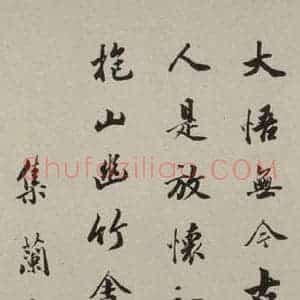 大悟無今古
人是放懷
抱山幽竹舍
集蘭
Shufaziliao.COM